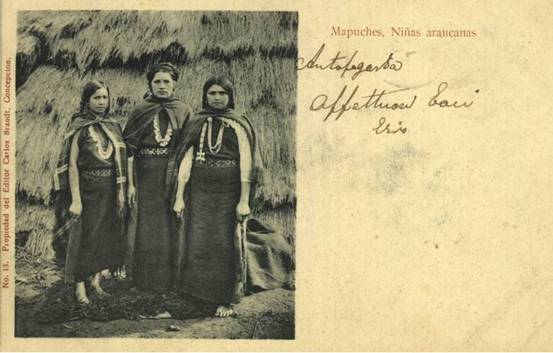 Mapuches, Niñas araucanas
Antofagasta
No. 13. Propiedad del Editor Carlos Brandt, Concepcion.